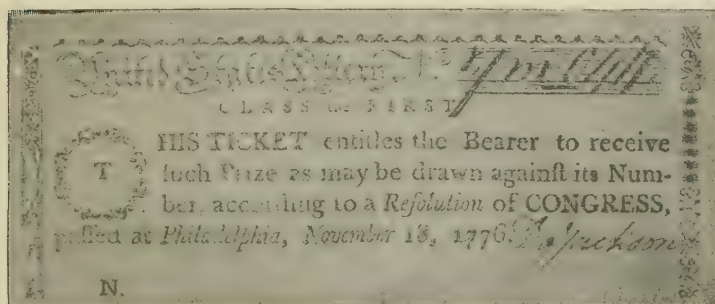 United States Lottery. No
CLASS the FIRST
THIS TICKET entitles the Bearer to receive
ſuch Prize as may be drawn againſt its Num-
ber, according to a Reſolution of CONGRESS,
paſſed at Philadelphia, November 18, 1776. Jackson
N.